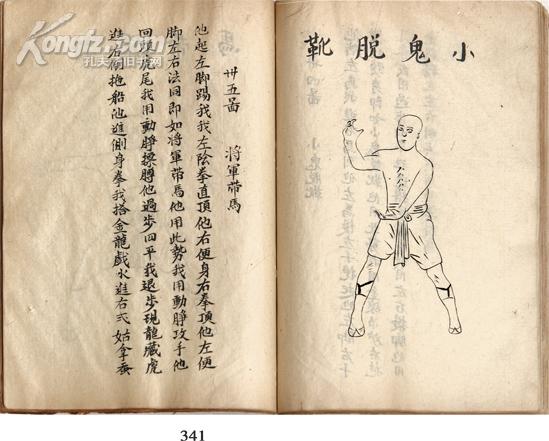 小鬼脱靴
卅五啚 將軍帶馬
他起左脚踢我我左陰拳直頂他右便身右拳頂他左便
脚左右法同即如將軍帶馬他用此勢我用動睜攻手他
回頭虎尾我用動睜摽膊他過步四平我退步現龍藏虎
進右倒拖船他進側身拳我搭金龍戲水進右弍 姑拿蚕
341
Kongfz.com
孔夫子旧书网